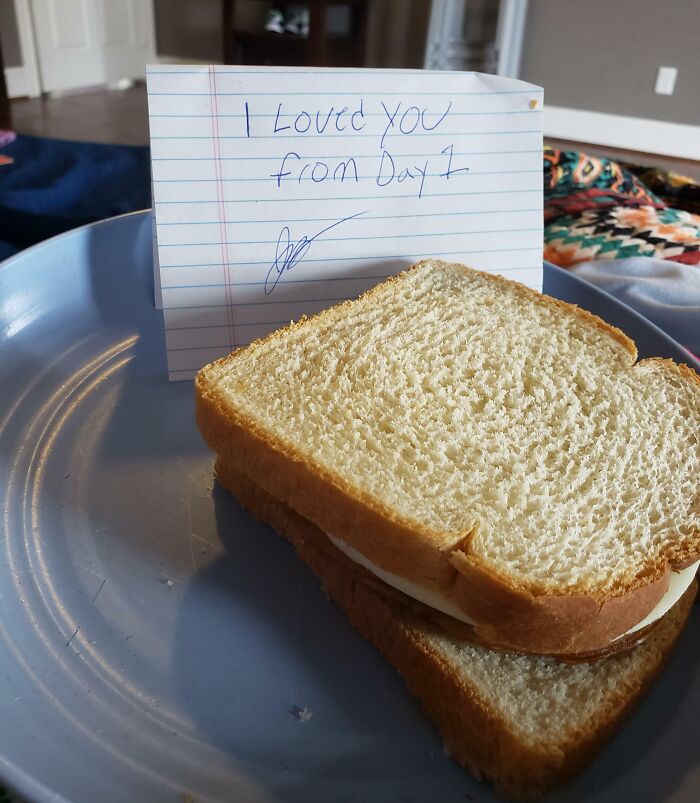 I Loved YOU
from Day 1